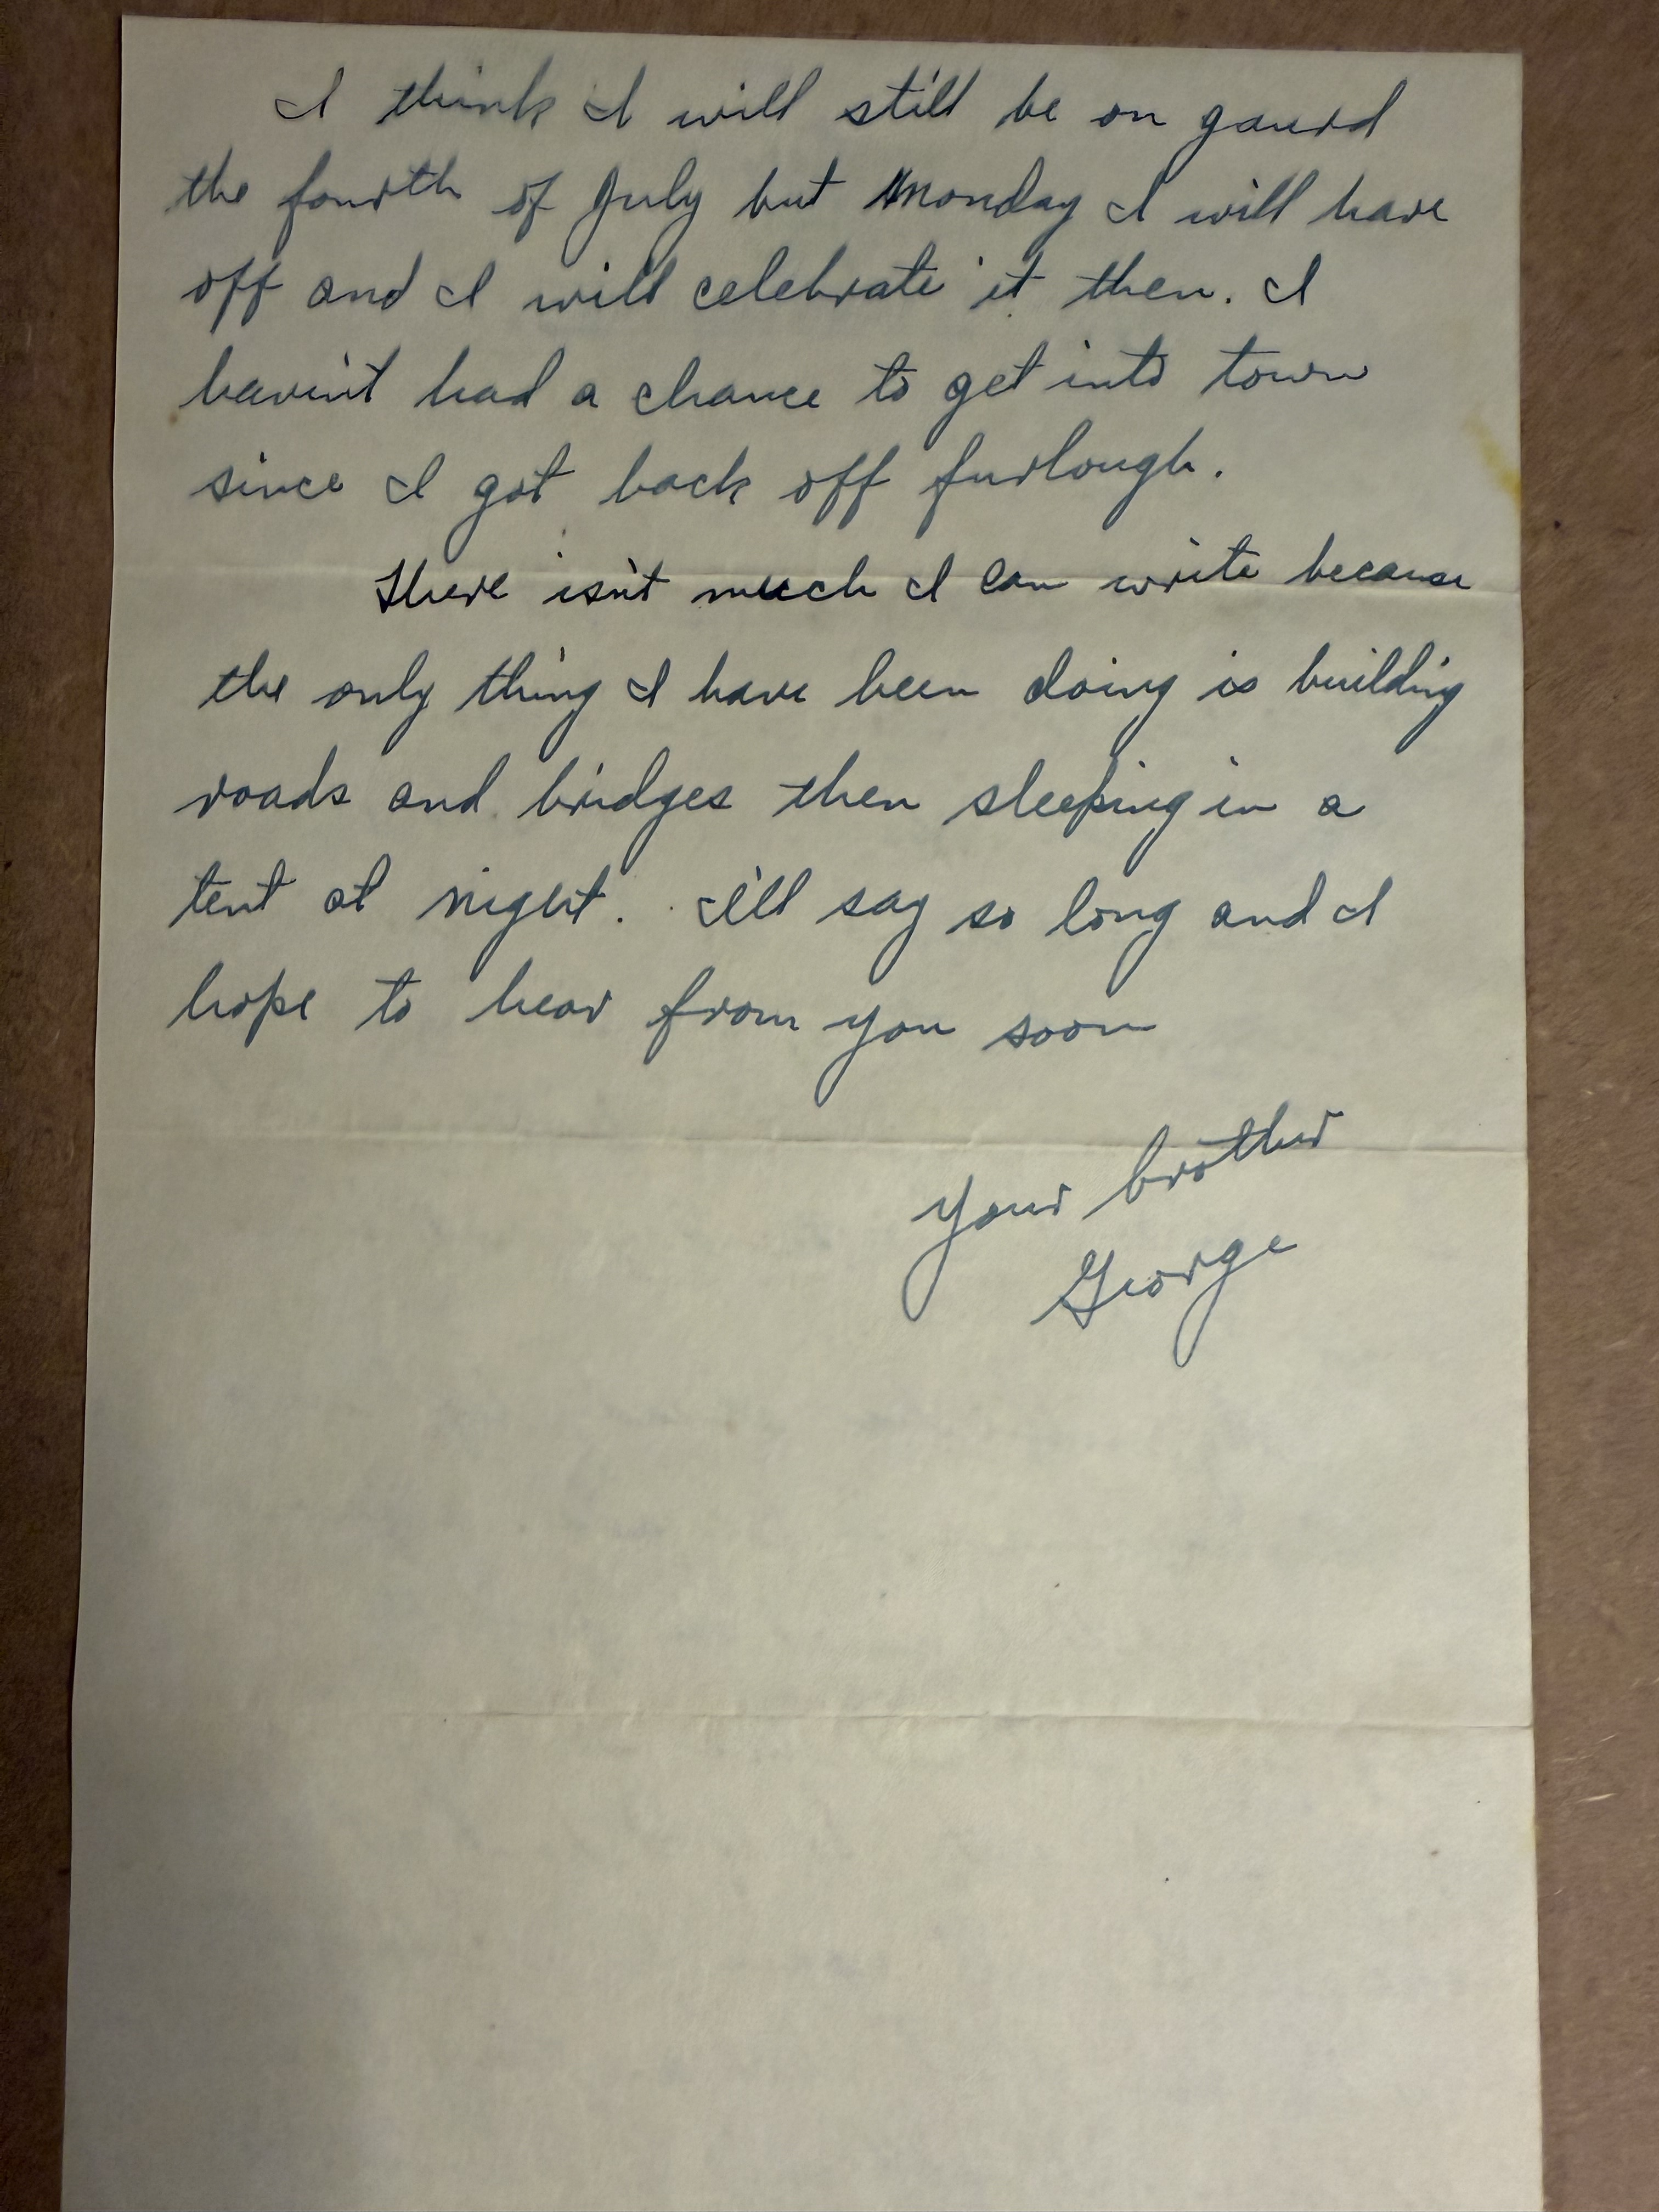 I think I will still be on gaurd
the fourth of July but Monday I will have
off and I will celebrate it then. I
haven't had a chance to get into town
since I got back off furlough.
There isn't much I can write because
the only thing I have been doing is building
roads and bridges then sleeping in a
tent at night. I'll say so long and I
hope to hear from you soon
Your brother
George